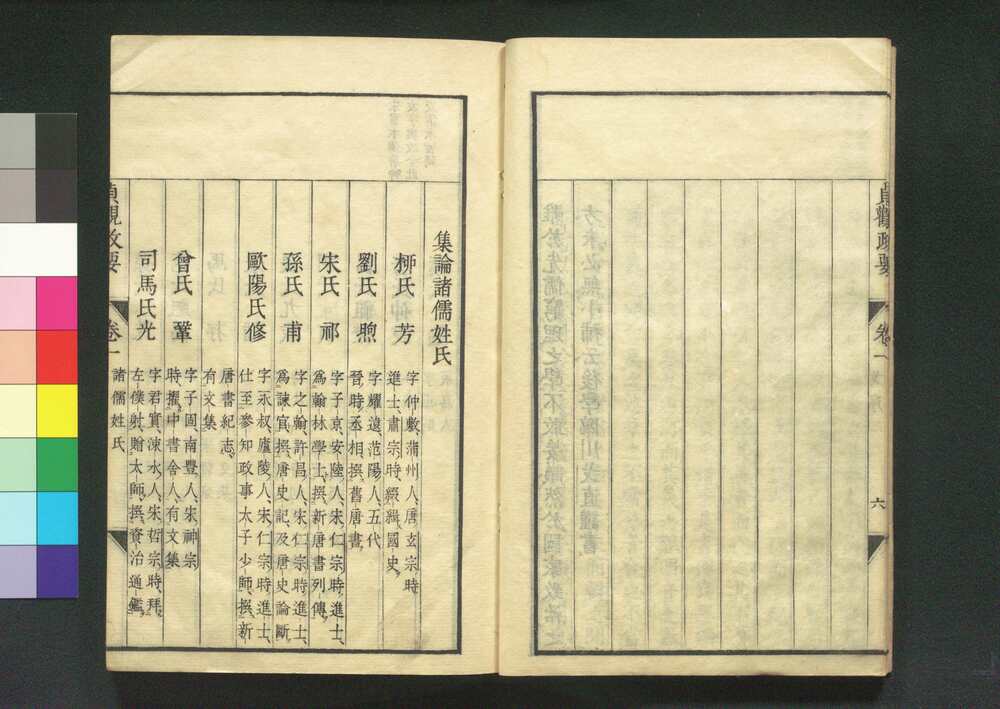 貞觀政要
卷一
六
集論諸儒姓氏
柳氏芳
字仲敷、蒲州人、唐玄宗時
進士、肅宗時、綴緝國史、
劉氏煦
字耀遠、范陽人、五代
晉時丞相、撰舊唐書、
宋氏祁
字子京、安陸人、宋仁宗時、進士、
爲翰林學士、撰新唐書列傳、
孫氏甫
字之翰、許昌人、宋仁宗時進士、
爲諫官、撰唐史記及唐史論斷、
歐陽氏修
字永叔、廬陵人、宋仁宗時進士、
仕至參知政事太子少師、撰新
唐書紀志、
有文集
曾氏鞏
字子固、南豐人、宋神宗
時、擢中書舍人、有文集
司馬氏光
字君實、涑水人、宋哲宗時、拜、
左僕射、贈太師、撰資治通鑑、
貞觀政要
卷一
諸儒姓氏